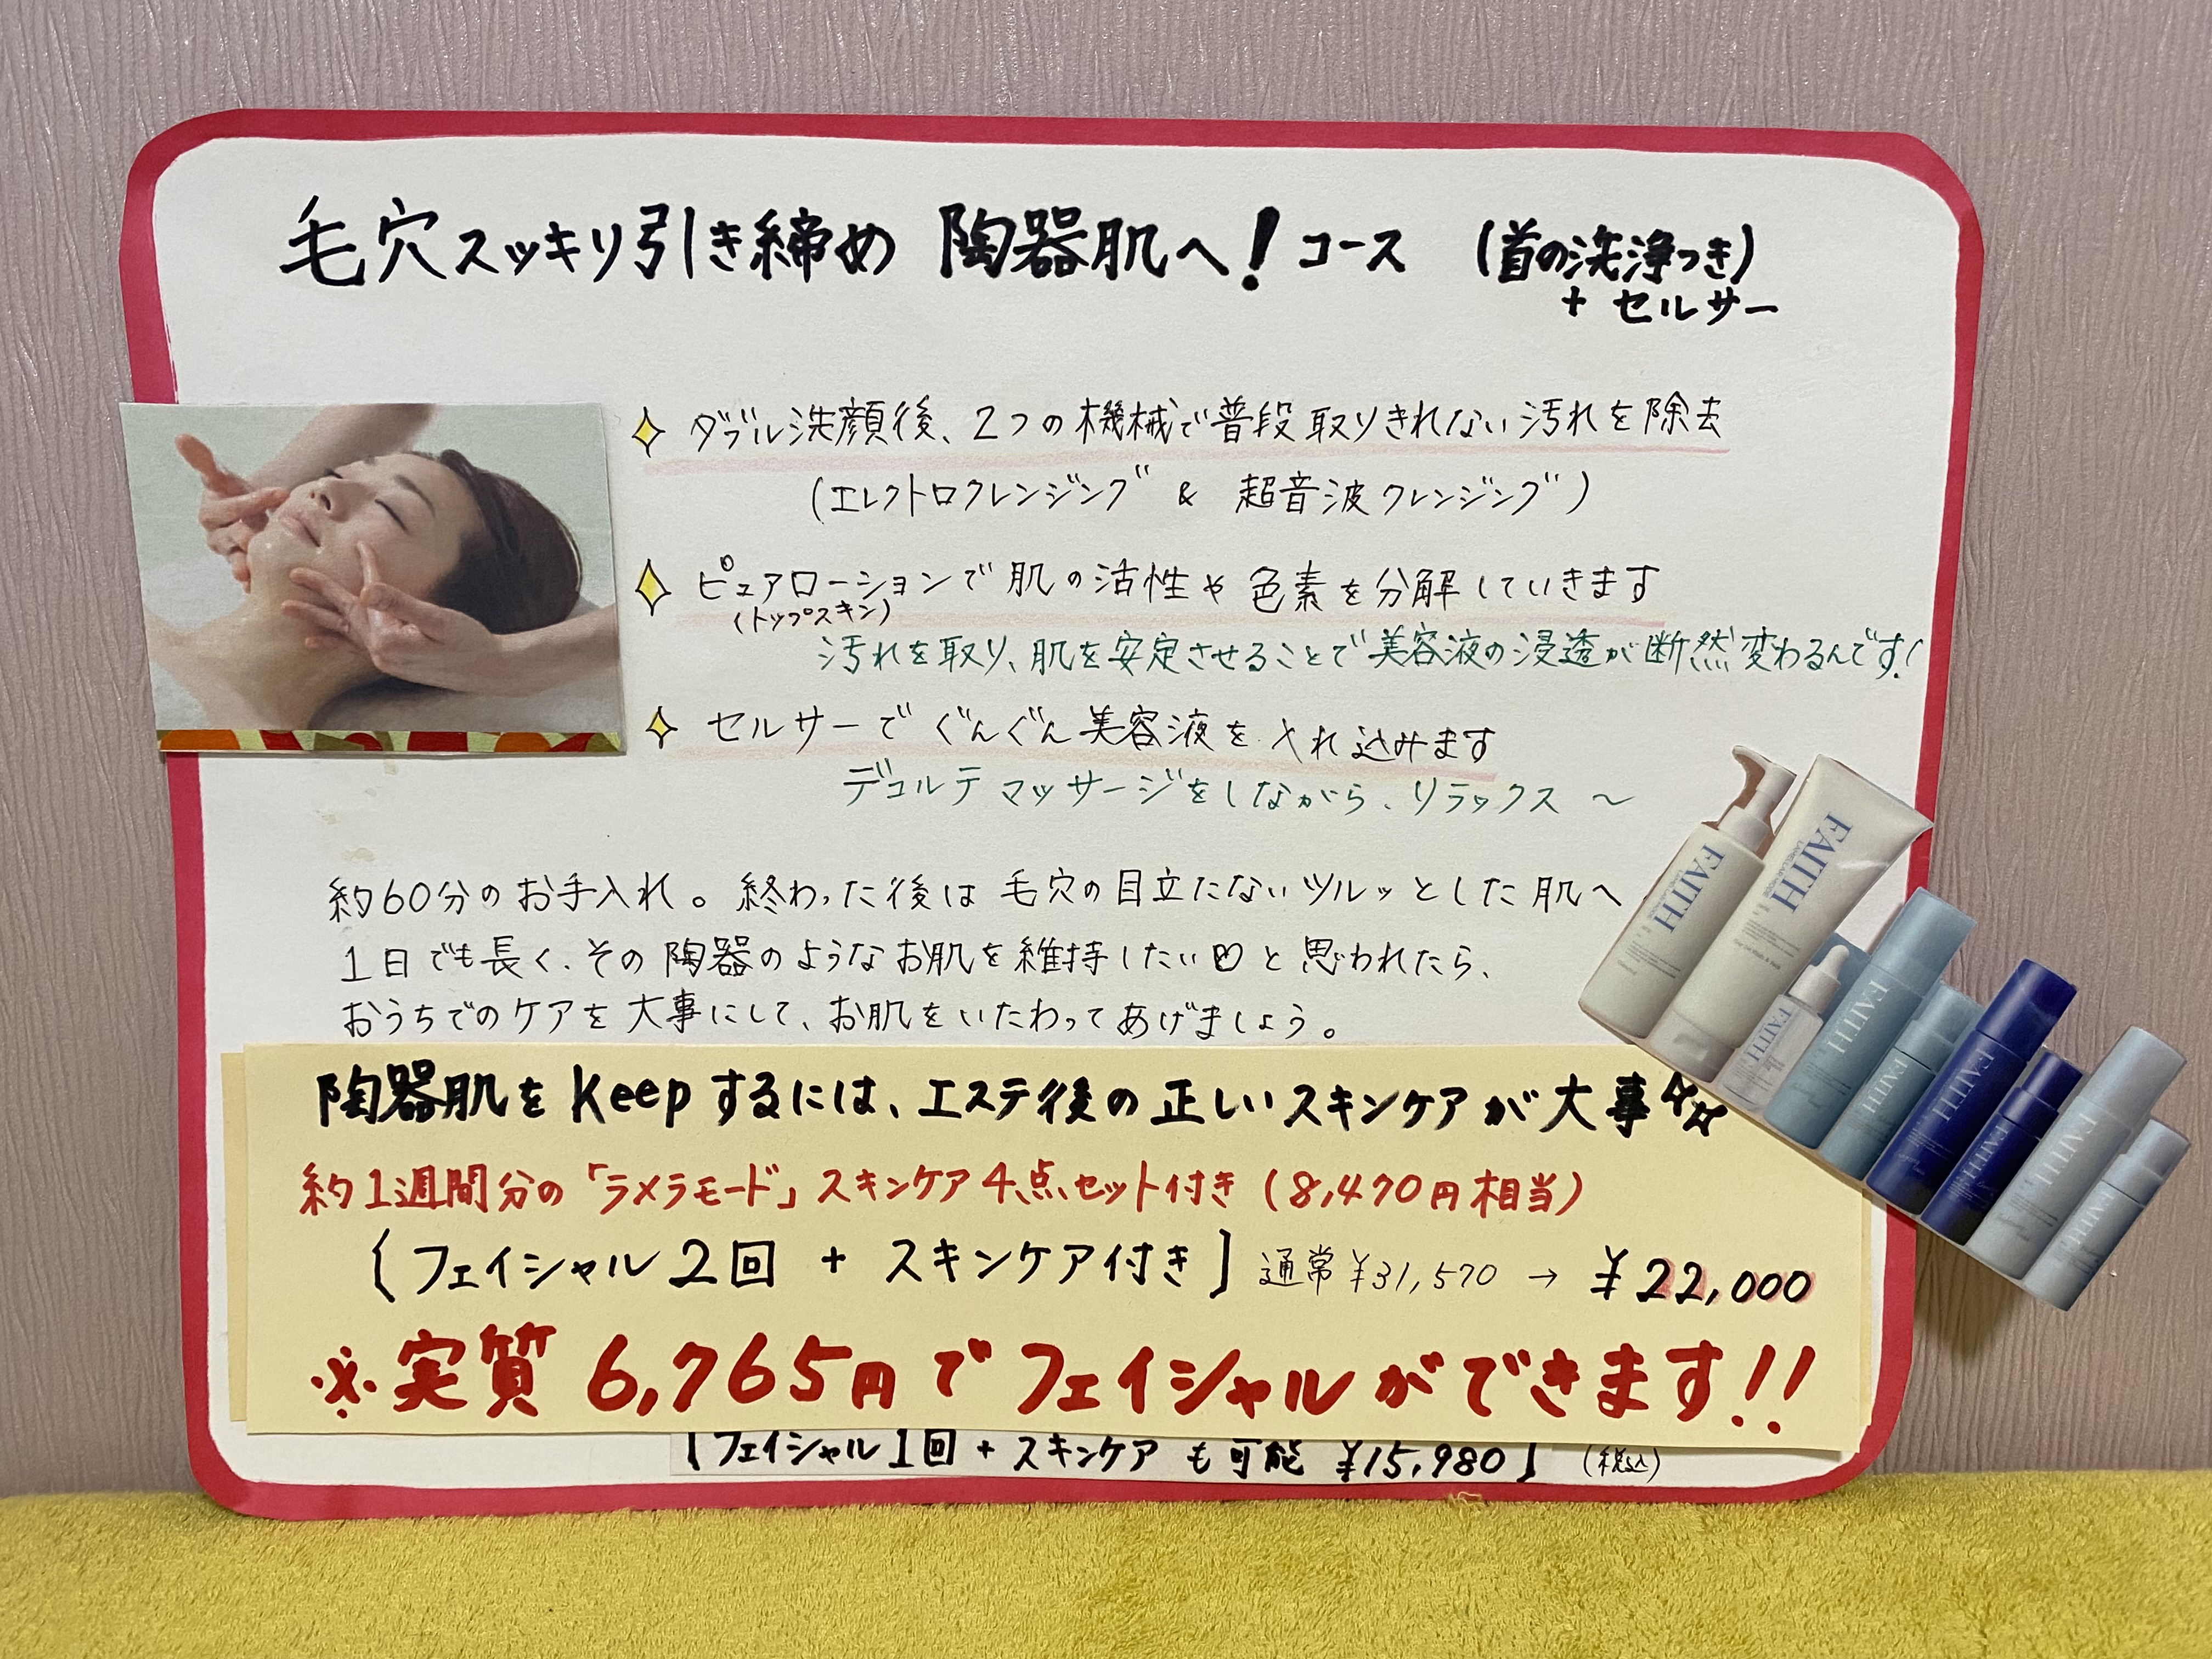 毛穴スッキリ引き締め 陶器肌へ！コース (首の洗浄つき)
+ セルサー
ダブル洗顔後、2つの機械で普段取りきれない汚れを除去
(エレクトロクレンジング & 超音波クレンジング)
ピュアローションで肌の活性や色素を分解していきます
(トップスキン)
汚れを取り、肌を安定させることで美容液の浸透が断然変わるんです!
セルサーでぐんぐん美容液を入れ込みます
デコルテマッサージをしながら、リラックス〜
約60分のお手入れ。終わった後は毛穴の目立たないツルッとした肌へ
1日でも長く、その陶器のようなお肌を維持したい♡と思われたら、
おうちでのケアを大事にして、お肌をいたわってあげましょう。
陶器肌をKeepするには、エステ後の正しいスキンケアが大事☆☆
約1週間分の「ラメラモード」スキンケア4点セット付き(8,470円相当)
[フェイシャル2回 + スキンケア付き] 通常¥31,570 → ¥22,000
※実質6,765円でフェイシャルができます!!
[フェイシャル1回+スキンケアも可能 ¥15,980] (税込)
FAITH
FAITH
FAITH
FAITH
FAITH
FAITH
FAITH
FAITH
FAITH